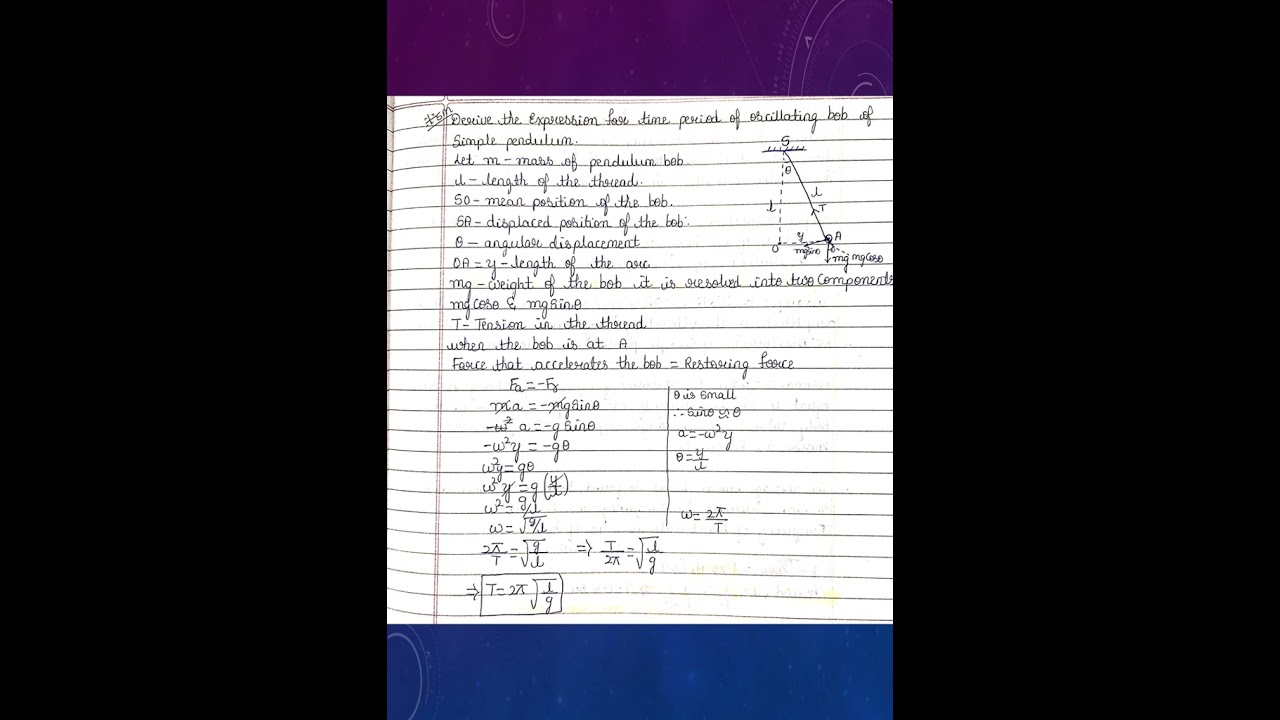 Derive the Expression for time period of oscillating bob of
Simple pendulum.
Let m - mass of pendulum bob
l - length of the thread.
SO - mean position of the bob.
SA - displaced position of the bob.
θ - angular displacement
OA = y - length of the arc
mg - weight of the bob it is resolved into two Components
mg cosθ & mg sinθ
T - Tension in the thread
when the bob is at A
Force that accelerates the bob = Restoring force
Fa = -Fr
ma = -mg sinθ
-ω² a = -g sinθ
-ω²y = -gθ
ω²y = gθ
ω²y = g (y/l)
ω² = g/l
ω = √g/l
2π/T = √g/l ⇒ T/2π = √l/g
⇒ T = 2π √l/g
θ is small
∴ sinθ ≈ θ
a = -ω²y
θ = y/l
ω = 2π/T
S
θ
l
l
T
y
A
O
mg sinθ
θ
mg mg cosθ